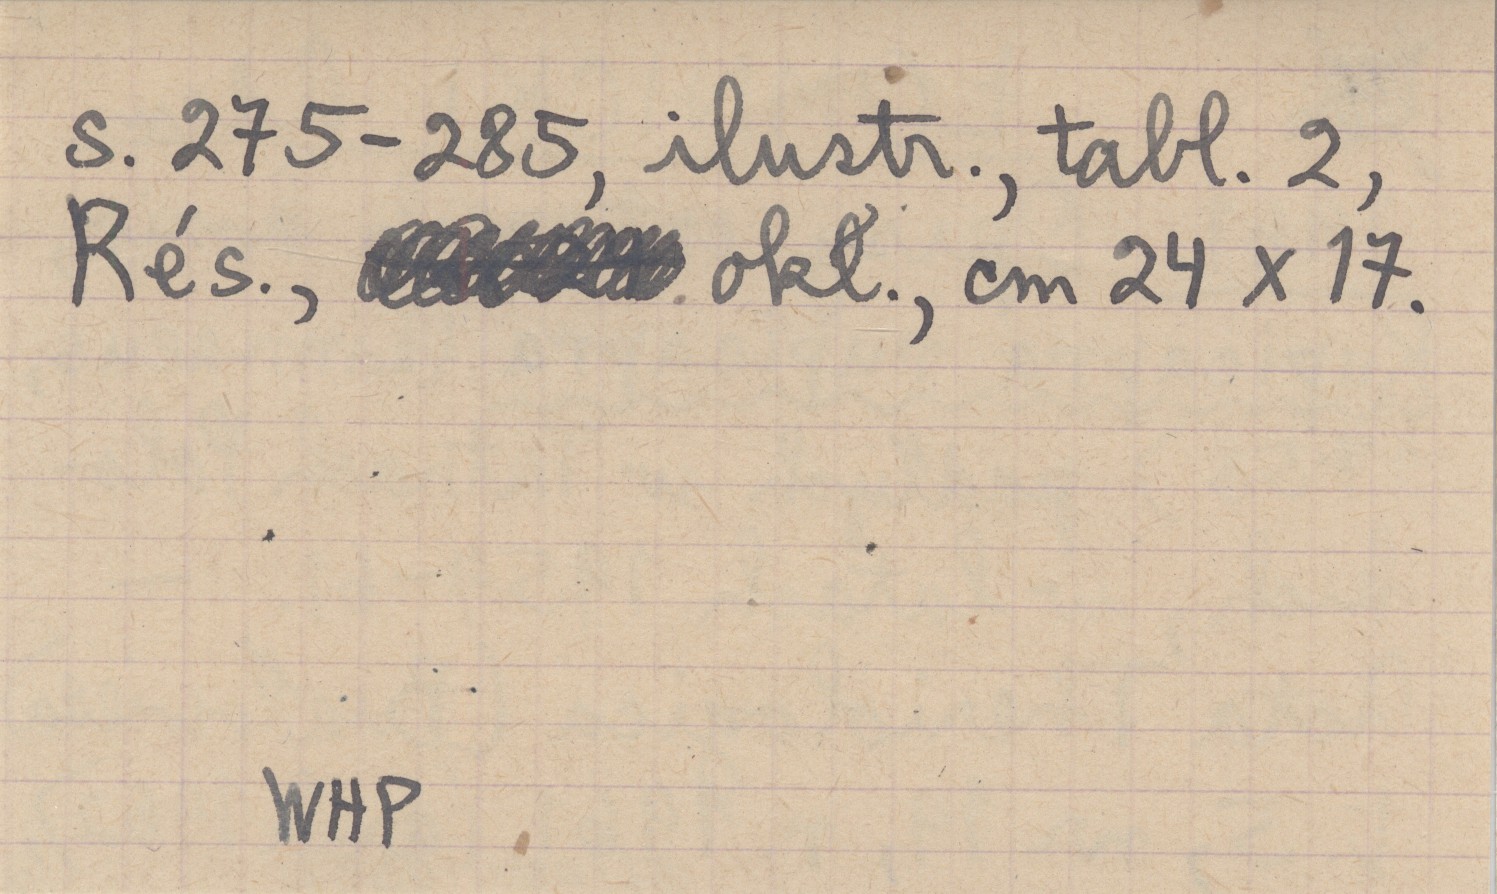 s. 275-285, ilustr., tabl. 2,
Rés., okł., cm 24 x 17.
WHP